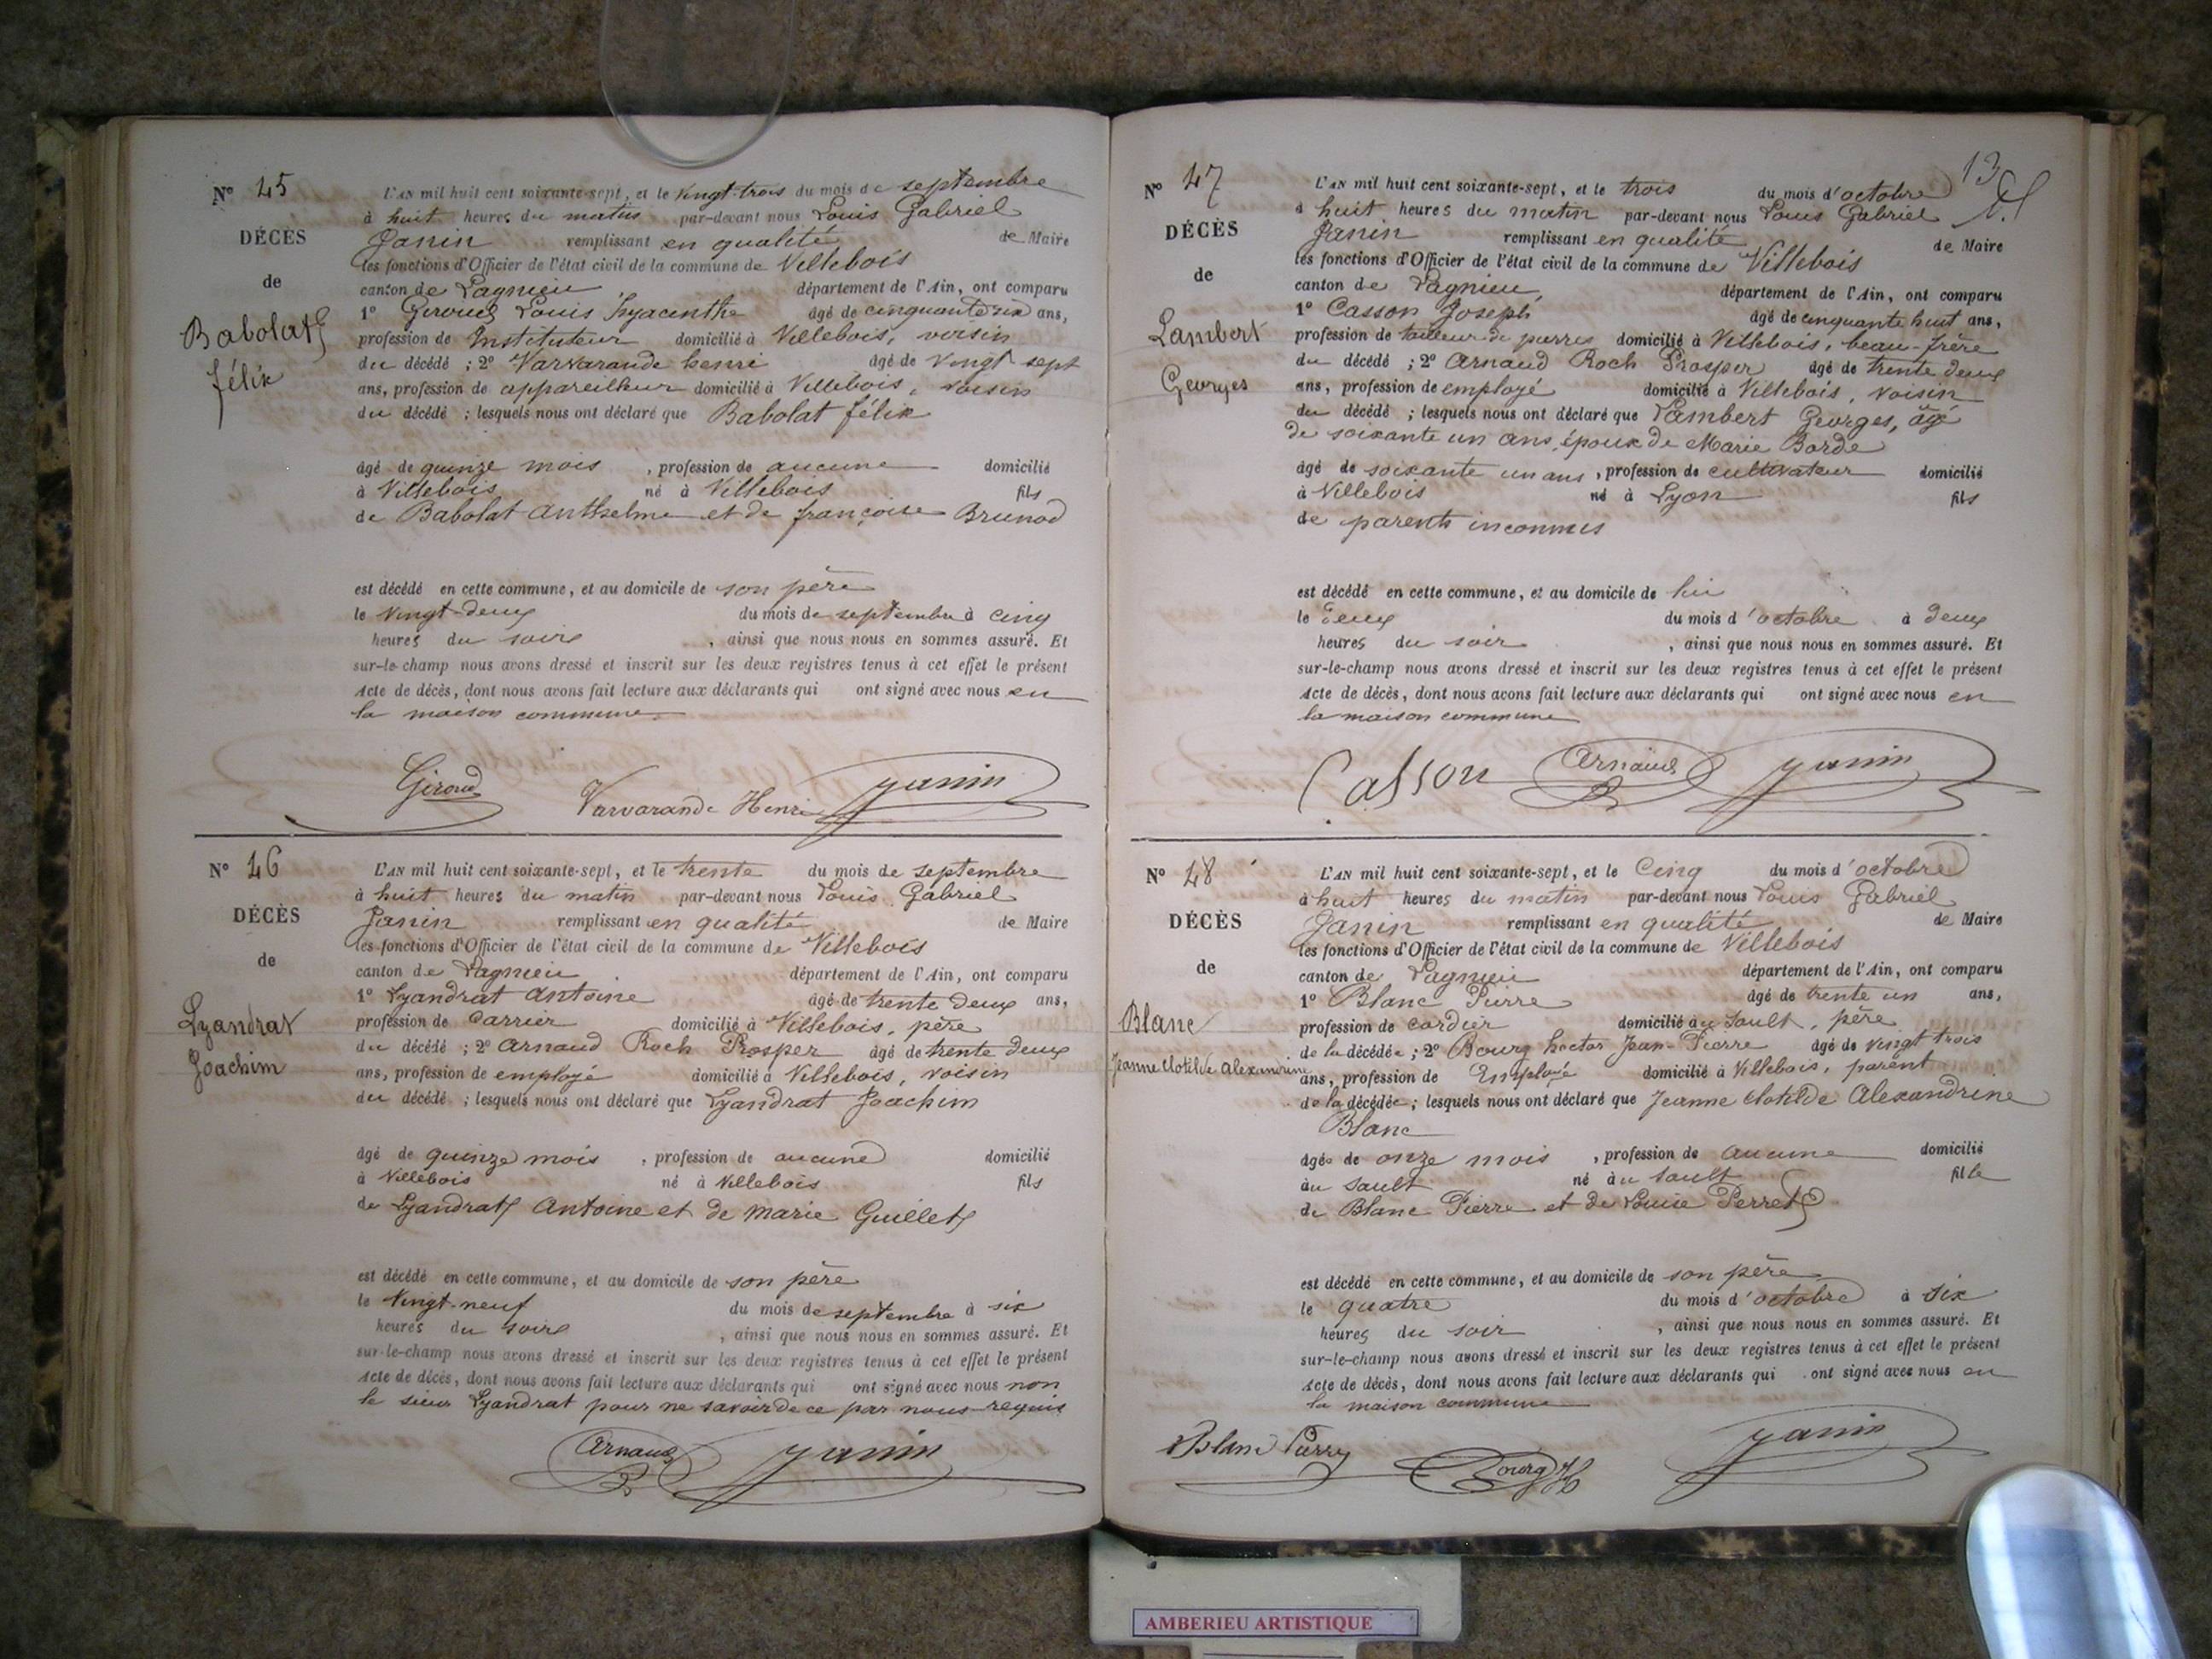 N° 45
DÉCÈS
de
Babolat
félix
L'AN mil huit cent soixante-sept, et le vingt-trois du mois de septembre
à huit heures du matin par-devant nous Louis Gabriel
Janin remplissant en qualité de Maire
les fonctions d'Officier de l'état civil de la commune de Villebois
canton de Lagnieu département de l'Ain, ont comparu
1° Giroud Louis hyacinthe âgé de cinquante six ans,
profession de Instituteur domicilié à Villebois, voisin
du décédé ; 2° Varvarande henri âgé de vingt sept
ans, profession de appareilleur domicilié à Villebois, voisin
du décédé ; lesquels nous ont déclaré que Babolat félix
âgé de quinze mois , profession de aucune domicilié
à Villebois né à Villebois fils
de Babolat Anthelme et de françoise Brunod
est décédé en cette commune, et au domicile de son père
le vingt-deux du mois de septembre à cinq
heures du soir , ainsi que nous nous en sommes assuré. Et
sur-le-champ nous avons dressé et inscrit sur les deux registres tenus à cet effet le présent
Acte de décès, dont nous avons fait lecture aux déclarants qui ont signé avec nous en
la maison commune
Giroud Varvarande Henri Janin
N° 46
DÉCÈS
de
Lyandrat
Joachim
L'AN mil huit cent soixante-sept, et le trente du mois de septembre
à huit heures du matin par-devant nous Louis Gabriel
Janin remplissant en qualité de Maire
les fonctions d'Officier de l'état civil de la commune de Villebois
canton de Lagnieu département de l'Ain, ont comparu
1° Lyandrat Antoine âgé de trente deux ans,
profession de Carrier domicilié à Villebois, père
du décédé ; 2° Arnaud Roch Prosper âgé de trente deux
ans, profession de employé domicilié à Villebois, voisin
du décédé ; lesquels nous ont déclaré que Lyandrat Joachim
âgé de quinze mois , profession de aucune domicilié
à Villebois né à Villebois fils
de Lyandrat Antoine et de Marie Guillet
est décédé en cette commune, et au domicile de son père
le vingt-neuf du mois de septembre à six
heures du soir , ainsi que nous nous en sommes assuré. Et
sur-le-champ nous avons dressé et inscrit sur les deux registres tenus à cet effet le présent
Acte de décès, dont nous avons fait lecture aux déclarants qui ont signé avec nous non
le sieur Lyandrat pour ne savoir de ce par nous requis
Arnaud Janin
13
N° 47
DÉCÈS
de
Lambert
Georges
L'AN mil huit cent soixante-sept, et le trois du mois d'octobre
à huit heures du matin par-devant nous Louis Gabriel
Janin remplissant en qualité de Maire
les fonctions d'Officier de l'état civil de la commune de Villebois
canton de Lagnieu, département de l'Ain, ont comparu
1° Casson Joseph âgé de cinquante huit ans,
profession de tailleur de pierres domicilié à Villebois, beau-frère
du décédé ; 2° Arnaud Roch Prosper âgé de trente deux
ans, profession de employé domicilié à Villebois, voisin
du décédé ; lesquels nous ont déclaré que Lambert Georges, âgé
de soixante un ans, époux de Marie Borde
âgé de soixante un ans, profession de cultivateur domicilié
à Villebois né à Lyon fils
de parents inconnus
est décédé en cette commune, et au domicile de lui
le deux du mois d'octobre à deux
heures du soir , ainsi que nous nous en sommes assuré. Et
sur-le-champ nous avons dressé et inscrit sur les deux registres tenus à cet effet le présent
Acte de décès, dont nous avons fait lecture aux déclarants qui ont signé avec nous en
la maison commune
Casson Arnaud Janin
N° 48
DÉCÈS
de
Blanc
Jeanne Clotilde Alexandrine
L'AN mil huit cent soixante-sept, et le Cinq du mois d'octobre
à huit heures du matin par-devant nous Louis Gabriel
Janin remplissant en qualité de Maire
les fonctions d'Officier de l'état civil de la commune de Villebois
canton de Lagnieu département de l'Ain, ont comparu
1° Blanc Pierre âgé de trente un ans,
profession de cordier domicilié au Sault, père
de la décédée ; 2° Bourg hector Jean-Pierre âgé de vingt trois
ans, profession de Employé domicilié à Villebois, parent
de la décédée ; lesquels nous ont déclaré que Jeanne Clotilde Alexandrine
Blanc
âgée de onze mois , profession de aucune domicilié
au Sault né au Sault fille
de Blanc Pierre et de Louise Perret
est décédé en cette commune, et au domicile de son père
le quatre du mois d'octobre à six
heures du soir , ainsi que nous nous en sommes assuré. Et
sur-le-champ nous avons dressé et inscrit sur les deux registres tenus à cet effet le présent
Acte de décès, dont nous avons fait lecture aux déclarants qui ont signé avec nous en
la maison commune
Blanc Pierre Bourg H Janin
AMBERIEU ARTISTIQUE